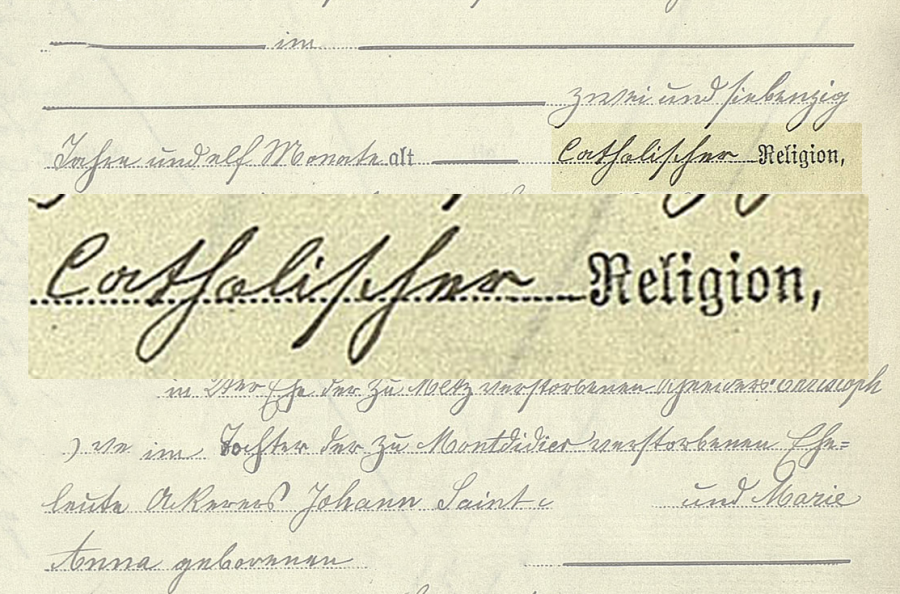 im
zwei und siebenzig
Jahre und elf Monate alt Catholischer Religion,
Catholischer Religion,
in 2ter Ehe der zu Metz verstorbenen Schneiders: Christoph
im Tochter der zu Montdidier verstorbenen Ehe=
leute Ackerers Johann Saint und Marie
Anna geborenen